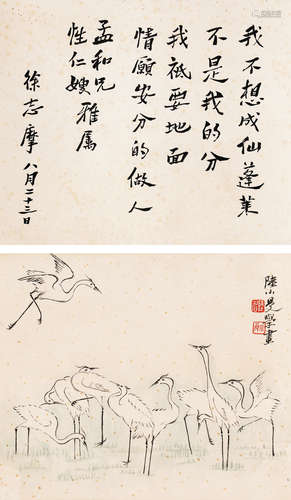 我不想成仙蓬莱
不是我的分
我祇要地面
情愿安分的做人
孟和兄
性仁嫂雅属
徐志摩 八月二十三日
陸小曼學畫